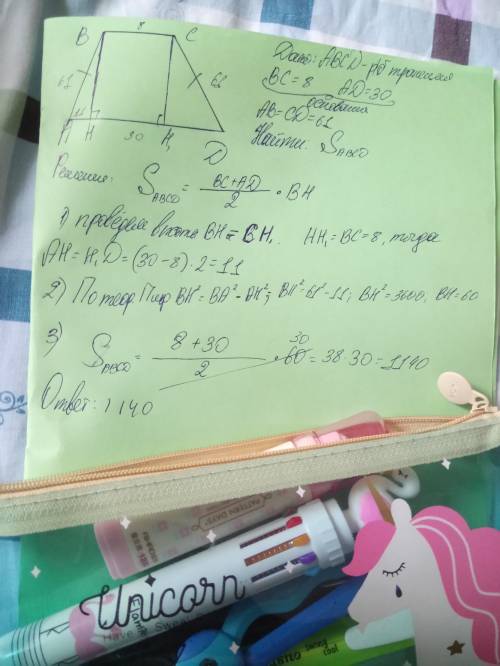 8
B C
61 61
A H 30 H₁ D
Дано: ABCD - рб трапеция
BC = 8 AD = 30
основания
AB = CD = 61
Найти: S ABCD
Решение:
S ABCD = (BC + AD) / 2 · BH
1) проведем высоты BH = CH₁. HH₁ = BC = 8, тогда
AH = H₁D = (30 - 8) : 2 = 11
2) По теор Пиф BH² = BA² - AH²; BH² = 61² - 11; BH² = 3600, BH = 60
3)
S ABCD = (8 + 30) / 2 · 60 30 = 38 · 30 = 1140
Ответ: 1140
PATTERN DAYS
Unicorn
Erasable